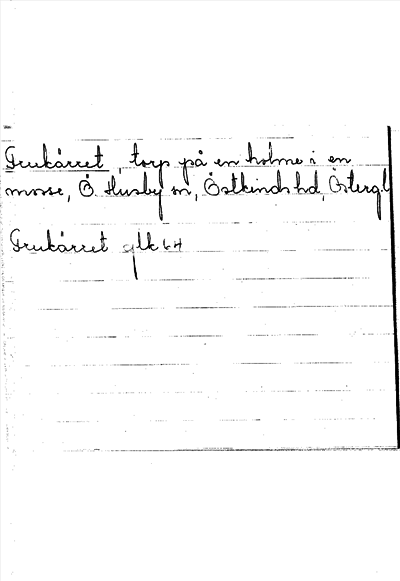 Frukärret, torp på en holme i en
mosse, Ö. Husby sn, Östkinds hd, Östergl
Frukärret glk 64